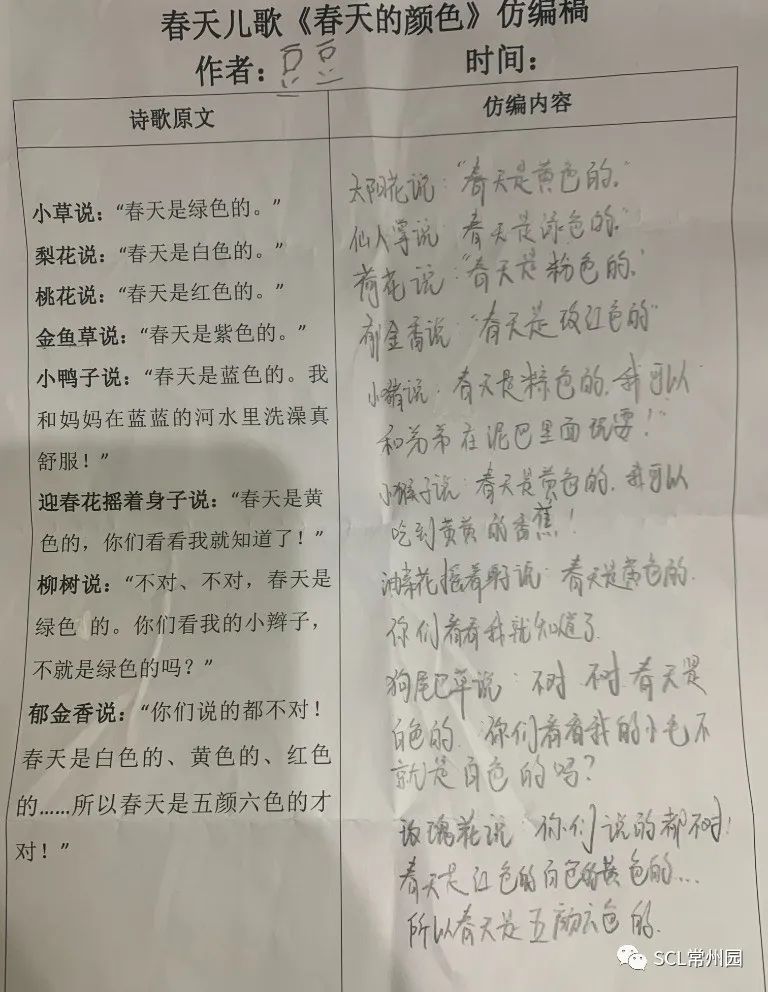 春天儿歌《春天的颜色》仿编稿
作者：豆豆 时间：
诗歌原文
小草说：“春天是绿色的。”
梨花说：“春天是白色的。”
桃花说：“春天是红色的。”
金鱼草说：“春天是紫色的。”
小鸭子说：“春天是蓝色的。我
和妈妈在蓝蓝的河水里洗澡真
舒服！”
迎春花摇着身子说：“春天是黄
色的，你们看看我就知道了！”
柳树说：“不对、不对，春天是
绿色 的。你们看我的小辫子，
不就是绿色的吗？”
郁金香说：“你们说的都不对！
春天是白色的、黄色的、红色
的……所以春天是五颜六色的才
对！”
仿编内容
太阳花说：“春天是黄色的。”
仙人掌说：“春天是绿色的。”
荷花说：“春天是粉色的。”
郁金香说：“春天是玫红色的”
小猪说：春天是棕色的，我可以
和弟弟在泥巴里面玩耍！”
小猴子说：春天是黄色的，我可以
吃到黄黄的香蕉！
油菜花摇着身子说：春天是黄色的.
你们看看我就知道了
狗尾巴草说：不对 不对 春天是
白色的. 你们看看我的小毛不
就是白色的吗？
玻璃花说：你们说的都不对！
春天是红色的白色的黄色的...
所以春天是五颜六色的.
SCL常州园